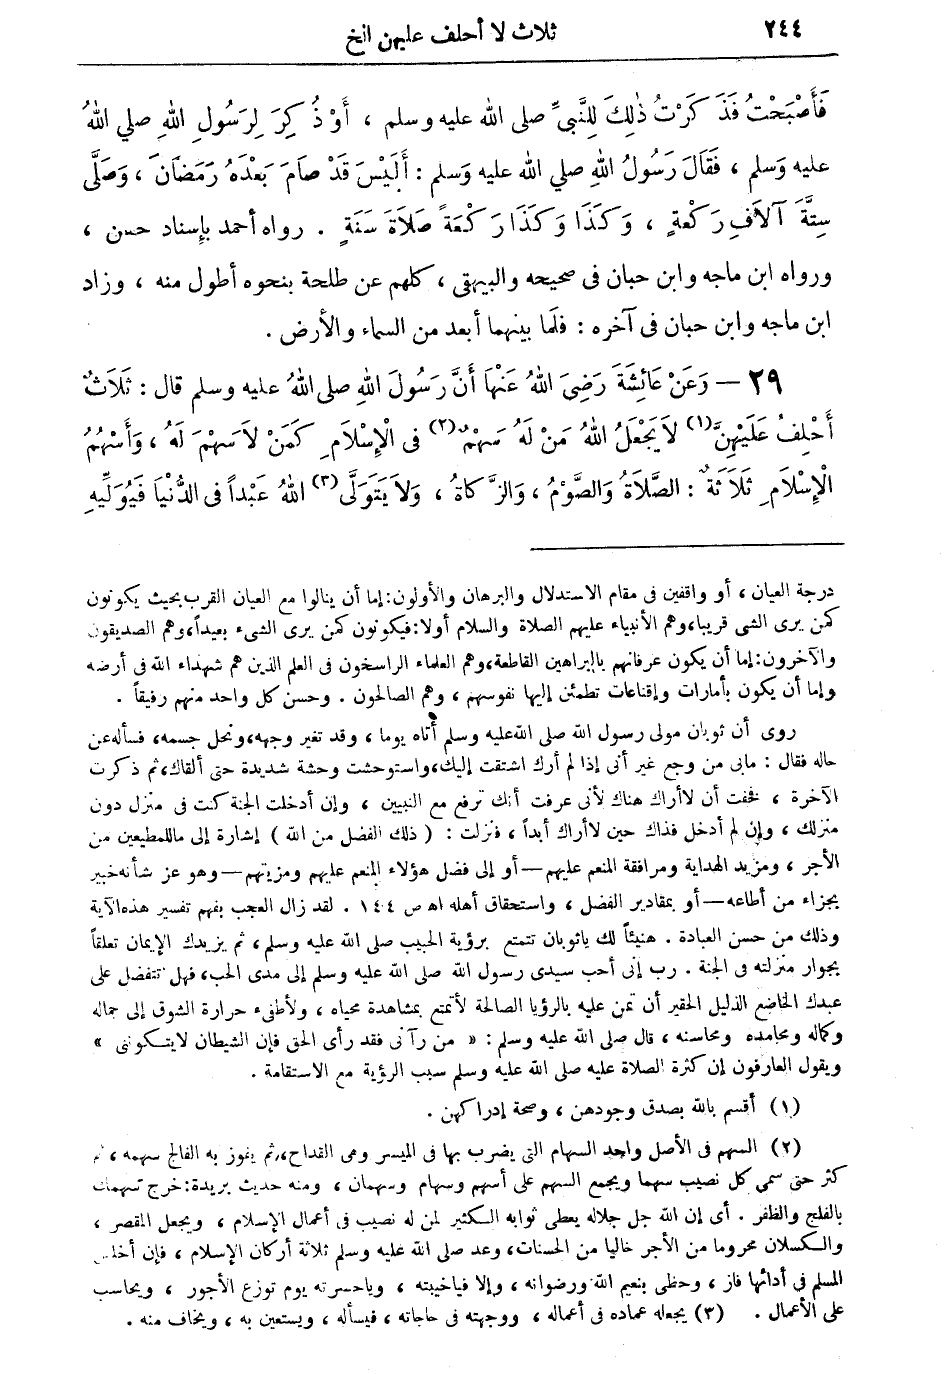 ٢٤٤
ثلاث لا أحلف عليهن الخ
فَأَصْبَحْتُ فَذَكَرْتُ ذٰلِكَ لِلنَّبِيِّ صلى الله عليه وسلم ، أَوْ ذُكِرَ لِرَسُولِ اللهِ صلي اللهُ
عليه وَسلم ، فَقَالَ رَسُولُ اللهِ صلي الله عليه وَسلم : أَلَيْسَ قَدْ صَامَ بَعْدَهُ رَمَضَانَ ، وَصَلَّى
سِتَّةَ آلاَفِ رَكْعَةٍ ، وَكَذَا وَكَذَا رَكْعَةً صَلاَةَ سَنَةٍ . رواه أحمد بإِسناد حسن ،
ورواه ابن ماجه وابن حبان فى صحيحه والبيهقى ، كلهم عن طلحة بنحوه أطول منه ، وزاد
ابن ماجه وابن حبان فى آخره : فلَما بينهما أبعد من السماء والأرض .
٢٩ — وَعَنْ عَائِشَةَ رَضِيَ اللهُ عَنْهَا أَنَّ رَسُولَ اللهِ صلى اللهُ عليه وسلم قال : ثَلَاثٌ
أَحْلِفُ عَلَيْهِنَّ(١) لاَ يَجْعَلُ اللهُ مَنْ لَهُ سَهْمٌ(٢) فى الْإِسْلاَمِ كَمَنْ لاَسَهْمَ لَهُ ، وَأَسْهُمُ
الْإِسْلاَمِ ثَلاَثَةٌ : الصَّلاَةُ وَالصَّوْمُ ، وَالزَّكاةُ ، وَلاَ يَتَوَلَّى(٣) اللهُ عَبْداً فى الدُّنْيَا فَيُوَلِّيهِ
درجة العيان ، أو واقفين فى مقام الاستدلال والبرهان والأولون:إما أن ينالوا مع العيان القرب بحيث يكونون
كمن يرى الشئ قريبا،وهم الأنبياء عليهم الصلاة والسلام أولا:فيكونون كمن يرى الشىء بعيداً،وهم الصديقون
والآخرون:إما أن يكون عرفانهم بالبراهين القاطعة،وهم العلماء الراسخون فى العلم الذين هم شهداء الله فى أرضه
وإما أن يكون بأمارات وإقناعات تطمئن إليها نفوسهم ، وهم الصالحون . وحسن كل واحد منهم رفيقاً .
روى أن ثوبان مولى رسول الله صلى الله عليه وسلم أتاه يوما ، وقد تغير وجهه،ونحل جسمه، فسأله عن
حاله فقال : مابى من وجع غير أنى إذا لم أرك اشتقت إليك،واستوحشت وحشة شديدة حتى ألقاك،ثم ذكرت
الآخرة ، فخفت أن لاأراك هناك لأنى عرفت أنك ترفع مع النبيين ، وإن أدخلت الجنة كنت فى منزل دون
منزلك ، وإن لم أدخل فذاك حين لاأراك أبداً ، فنزلت : ( ذلك الفضل من الله ) إشارة إلى ماللمطيعين من
الأجر ، ومزيد الهداية ومرافقة المنعم عليهم — أو إلى فضل هؤلاء المنعم عليهم ومزيتهم — وهو عز شأنه خبير
بجزاء من أطاعه — أو بمقادير الفضل ، واستحقاق أهله اه ص ١٤٤ . لقد زال العجب بفهم تفسير هذه الآية
وذلك من حسن العبادة . هنيئاً لك ياثوبان تتمتع برؤية الحبيب صلى الله عليه وسلم، ثم يزيدك الإيمان تعلقاً
بجوار منزلته فى الجنة . رب إنى أحب سيدى رسول الله صلى الله عليه وسلم إلى مدى الحب، فهل تتفضل على
عبدك الخاضع الذليل الحقير أن تمن عليه بالرؤيا الصالحة لأتمتع بمشاهدة محياه ، ولأطفىء حرارة الشوق إلى جماله
وكماله ومحامده ومحاسنه ، قال صلى الله عليه وسلم : « من رآنى فقد رأى الحق فإن الشيطان لايتكوننى »
ويقول العارفون إن كثرة الصلاة عليه صلى الله عليه وسلم سبب الرؤية مع الاستقامة .
(١) أقسم بالله بصدق وجودهن ، وصحة إدراكهن .
(٢) السهم فى الأصل واحد السهام التى يضرب بها فى الميسر وهى القداح،ثم يفوز به الفالج سهمه ، ثم
كثر حتى سمى كل نصيب سهما ويجمع السهم على أسهم وسهام وسهمان ، ومنه حديث بريدة:خرج سهمك
بالفلج والظفر . أى إن الله جل جلاله يعطى ثوابه الكثير لمن له نصيب فى أعمال الإسلام ، ويجعل المقصر ،
والكسلان محروما من الأجر خاليا من الحسنات، وعد صلى الله عليه وسلم ثلاثة أركان الإسلام ، فإن أخلص
المسلم فى أدائها فاز ، وحظى بنعيم الله ورضوانه ، وإلا فياخيبته ، وياحسرته يوم توزع الأجور ، ويحاسب
على الأعمال . (٣) يجعله عماده فى أعماله ، ووجهته فى حاجاته ، فيسأله ، ويستعين به ، ويخاف منه .